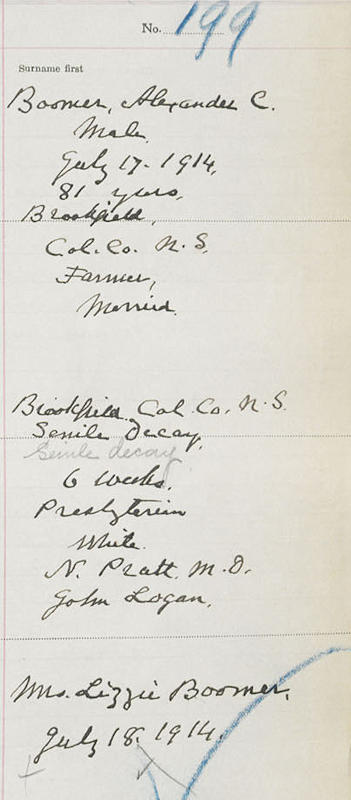 No. 199
Surname first
Boomer, Alexander C.
Male,
July 17-1914,
81 years,
Brookfield,
Col. Co. N. S.
Farmer,
Married.
Brookfield Col. Co. N. S.
Senile Decay,
Senile decay
6 weeks.
Presbyterien
White.
N. Pratt. M. D.
John Logan.
Mrs. Lizzie Boomer,
July 18. 1914.